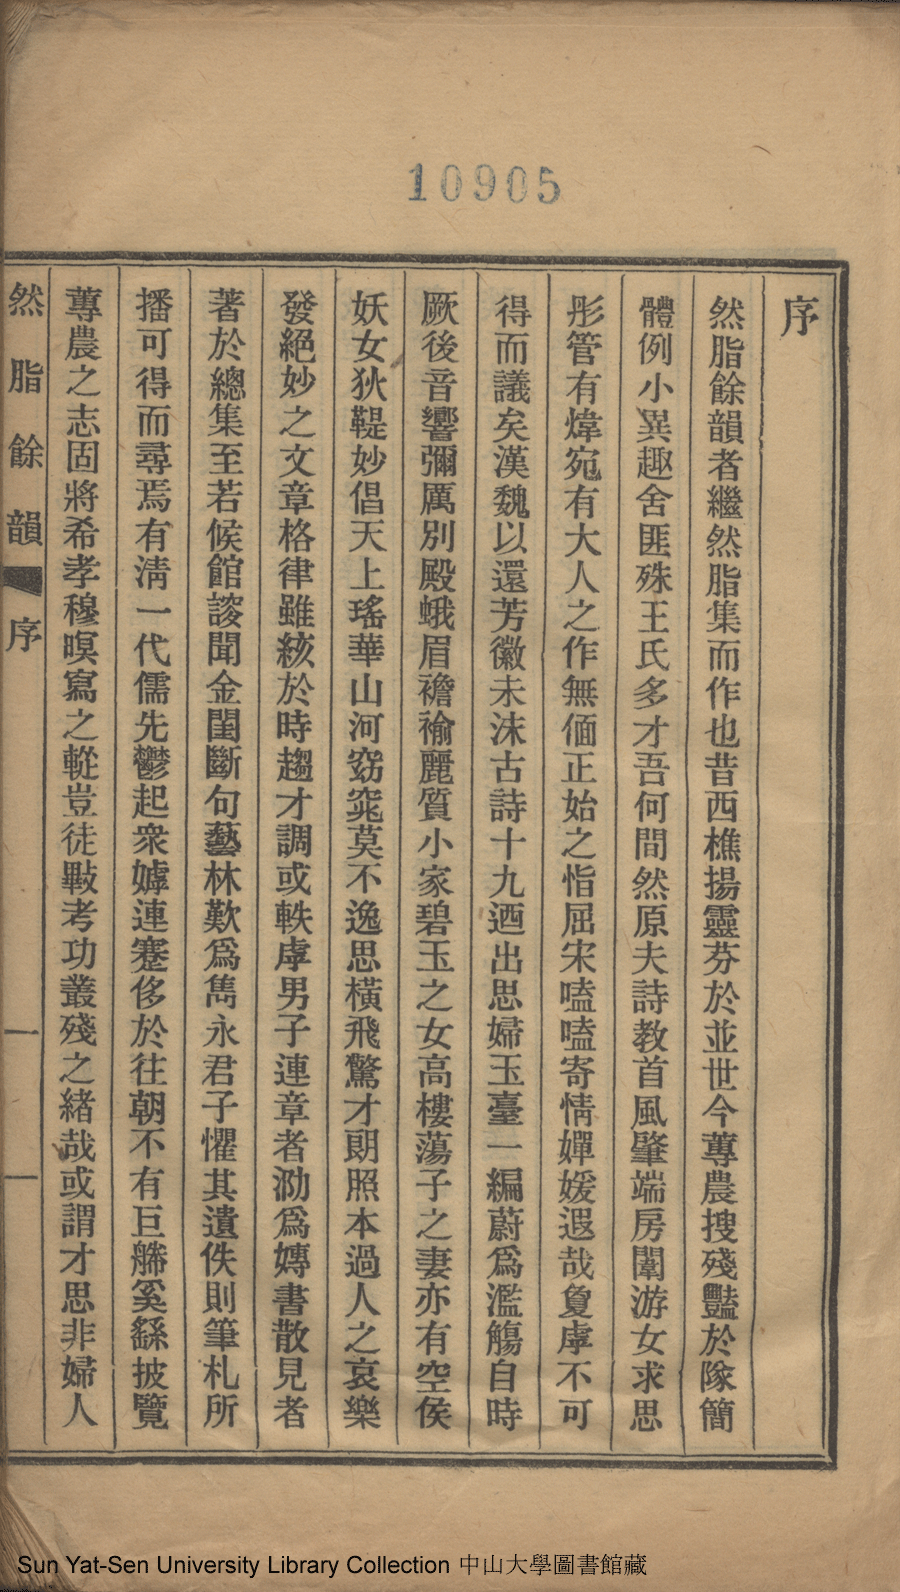 10905
序
然脂餘韻者繼然脂集而作也昔西樵揚靈芬於並世今蓴農搜殘豔於隊簡
體例小異趣舍匪殊王氏多才吾何間然原夫詩教首風肇端房闈游女求思
彤管有煒宛有大人之作無偭正始之恉屈宋嗑嗑寄情嬋媛遐哉敻虖不可
得而議矣漢魏以還芳徽未沬古詩十九迺出思婦玉臺一編蔚爲濫觴自時
厥後音響彌厲別殿蛾眉襜褕麗質小家碧玉之女高樓蕩子之妻亦有空侯
妖女狄鞮妙倡天上瑤華山河窈窕莫不逸思橫飛驚才朗照本過人之哀樂
發絕妙之文章格律雖絯於時趨才調或軼虖男子連章者泐爲嫥書散見者
著於總集至若候館謏聞金閨斷句藝林歎爲雋永君子懼其遺佚則筆札所
播可得而尋焉有淸一代儒先鬱起衆嫭連蹇侈於往朝不有巨幐奚繇披覽
蓴農之志固將希孝穆暝寫之蹤豈徒斅考功叢殘之緒哉或謂才思非婦人
然脂餘韻 序 一 一
Sun Yat-Sen University Library Collection 中山大學圖書館藏